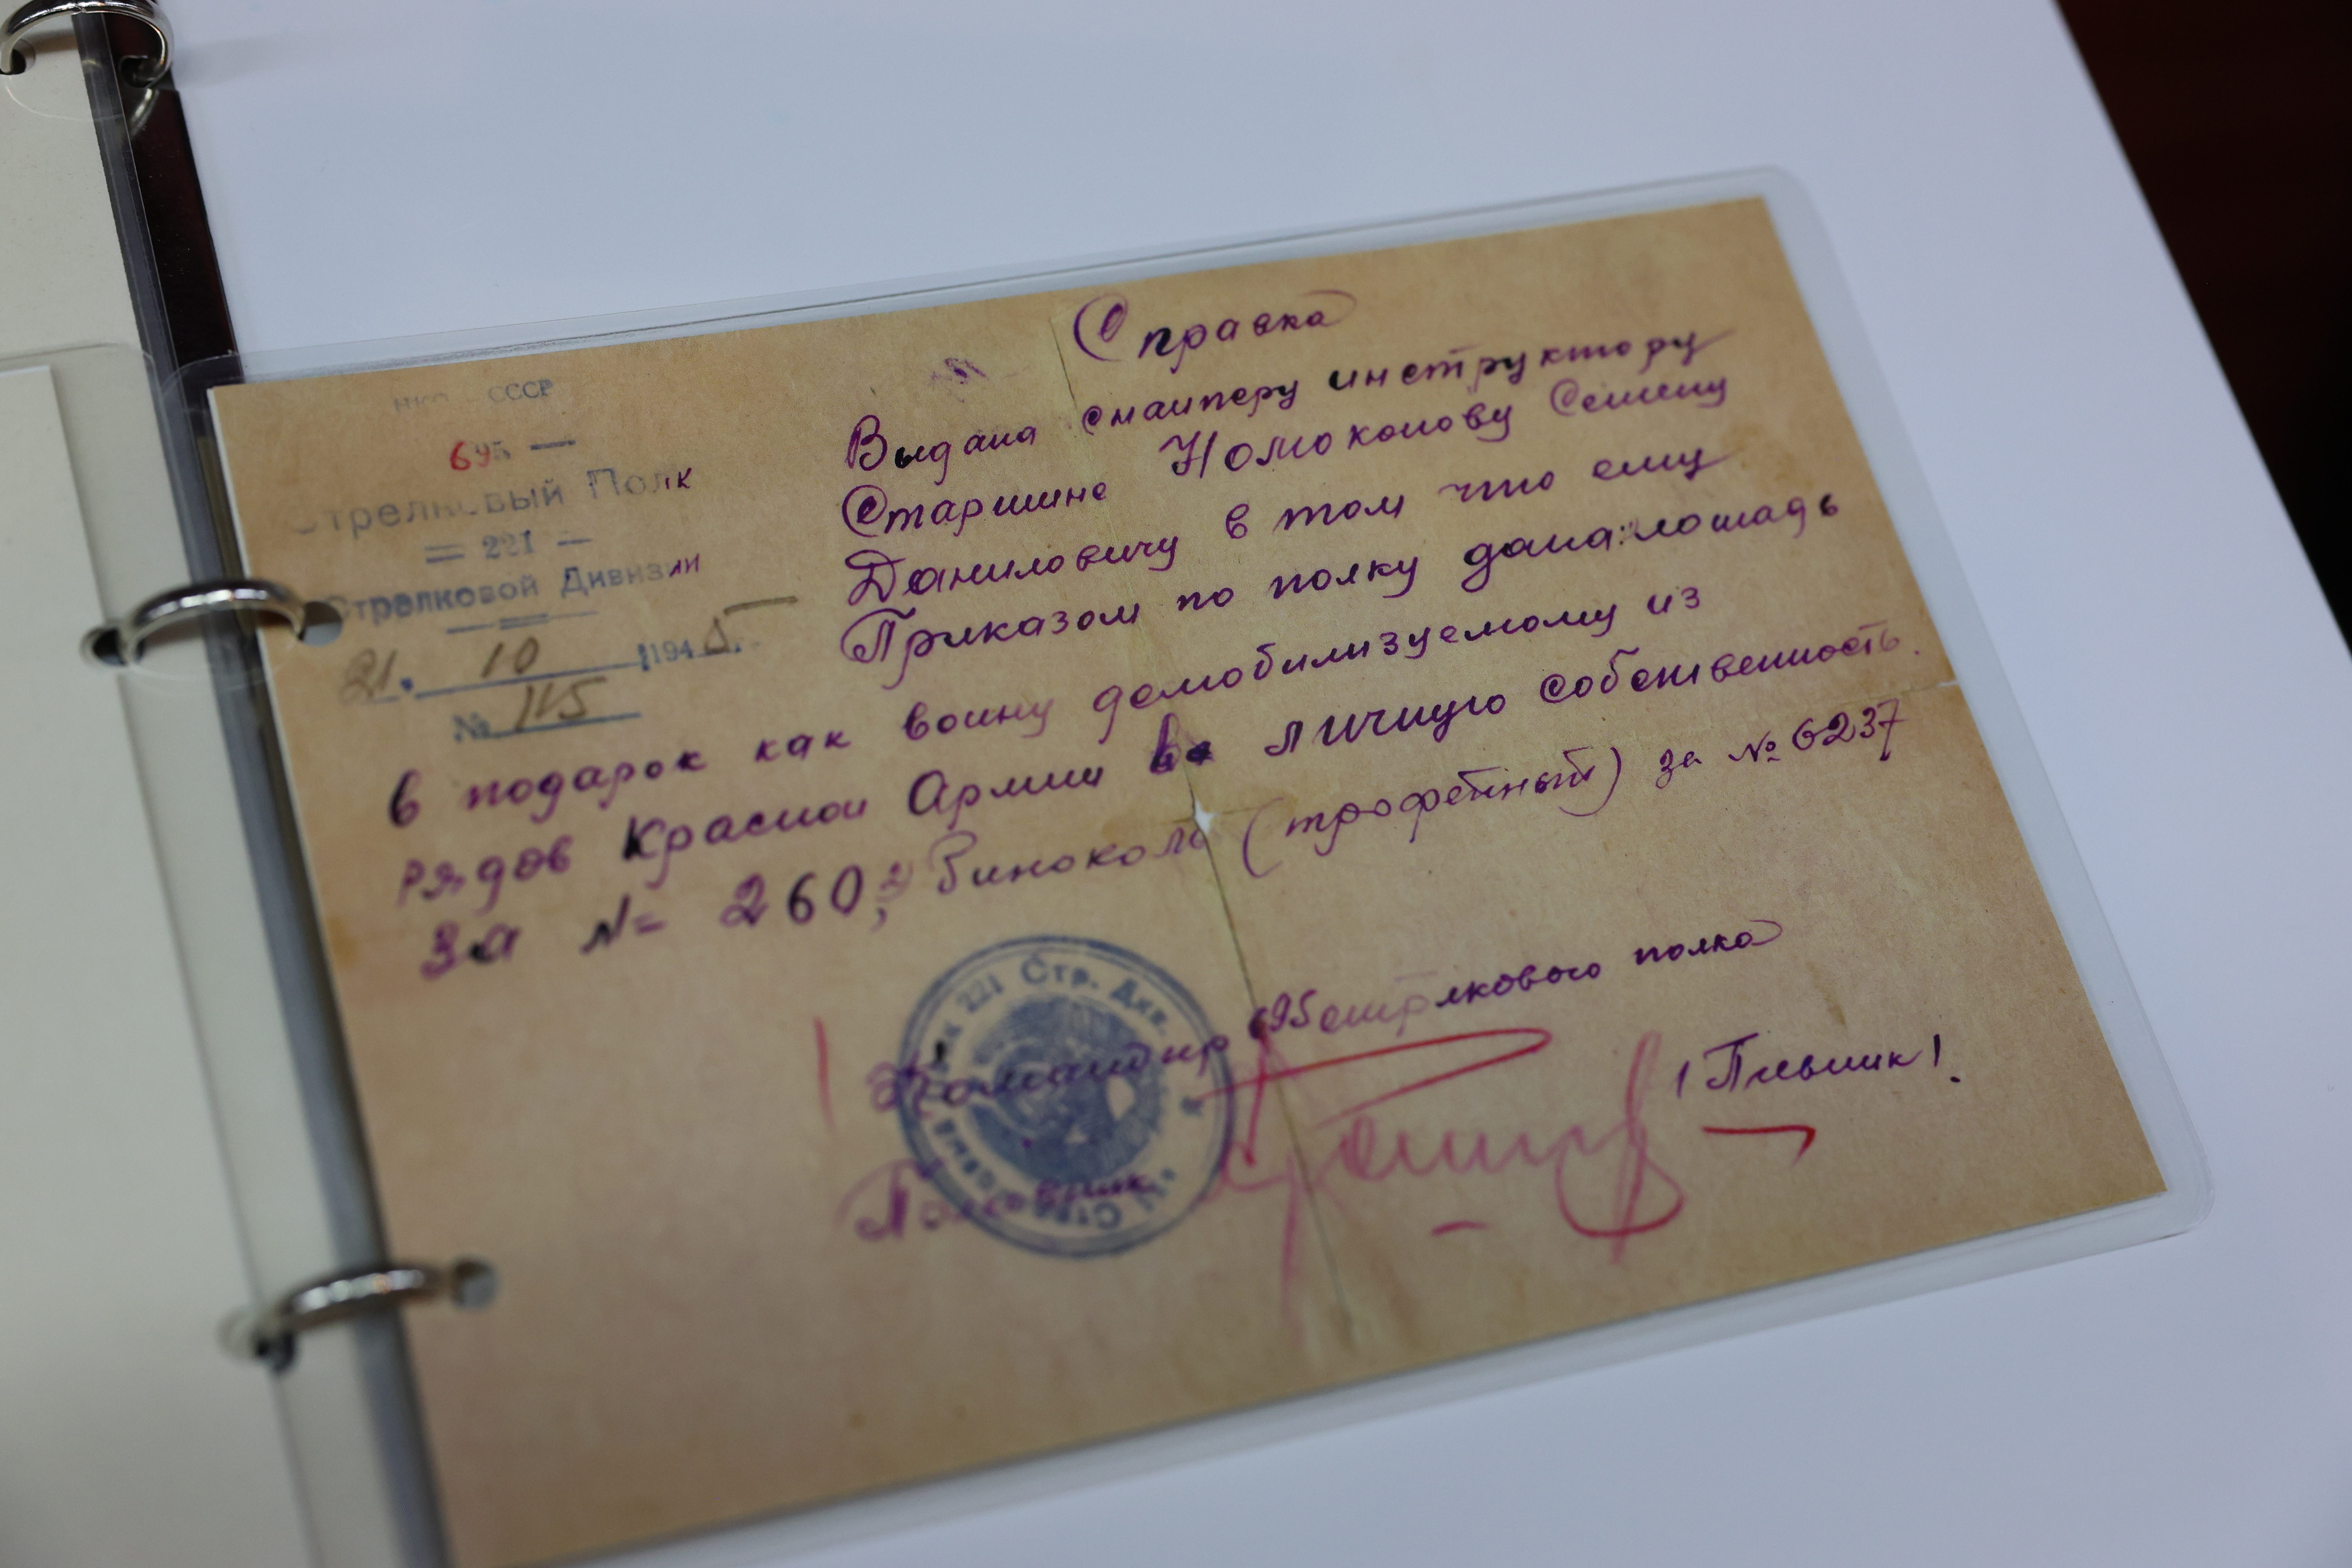 Справка
НКО СССР
695 —
Стрелковый Полк
= 221 —
Стрелковой Дивизии
21. 10 1945.
№ 115
Выдана снайперу инструктору
Старшине Номоконову Семену
Даниловичу в том что ему
Приказом по полку дана: лошадь
в подарок как воину демобилизуемому из
рядов Красной Армии в личную собственность.
за № 260, Биноколь (трофейный) за № 6237
Командир 695 стрелкового полка
Полковник /Пивник/.
221 Стр. Див.